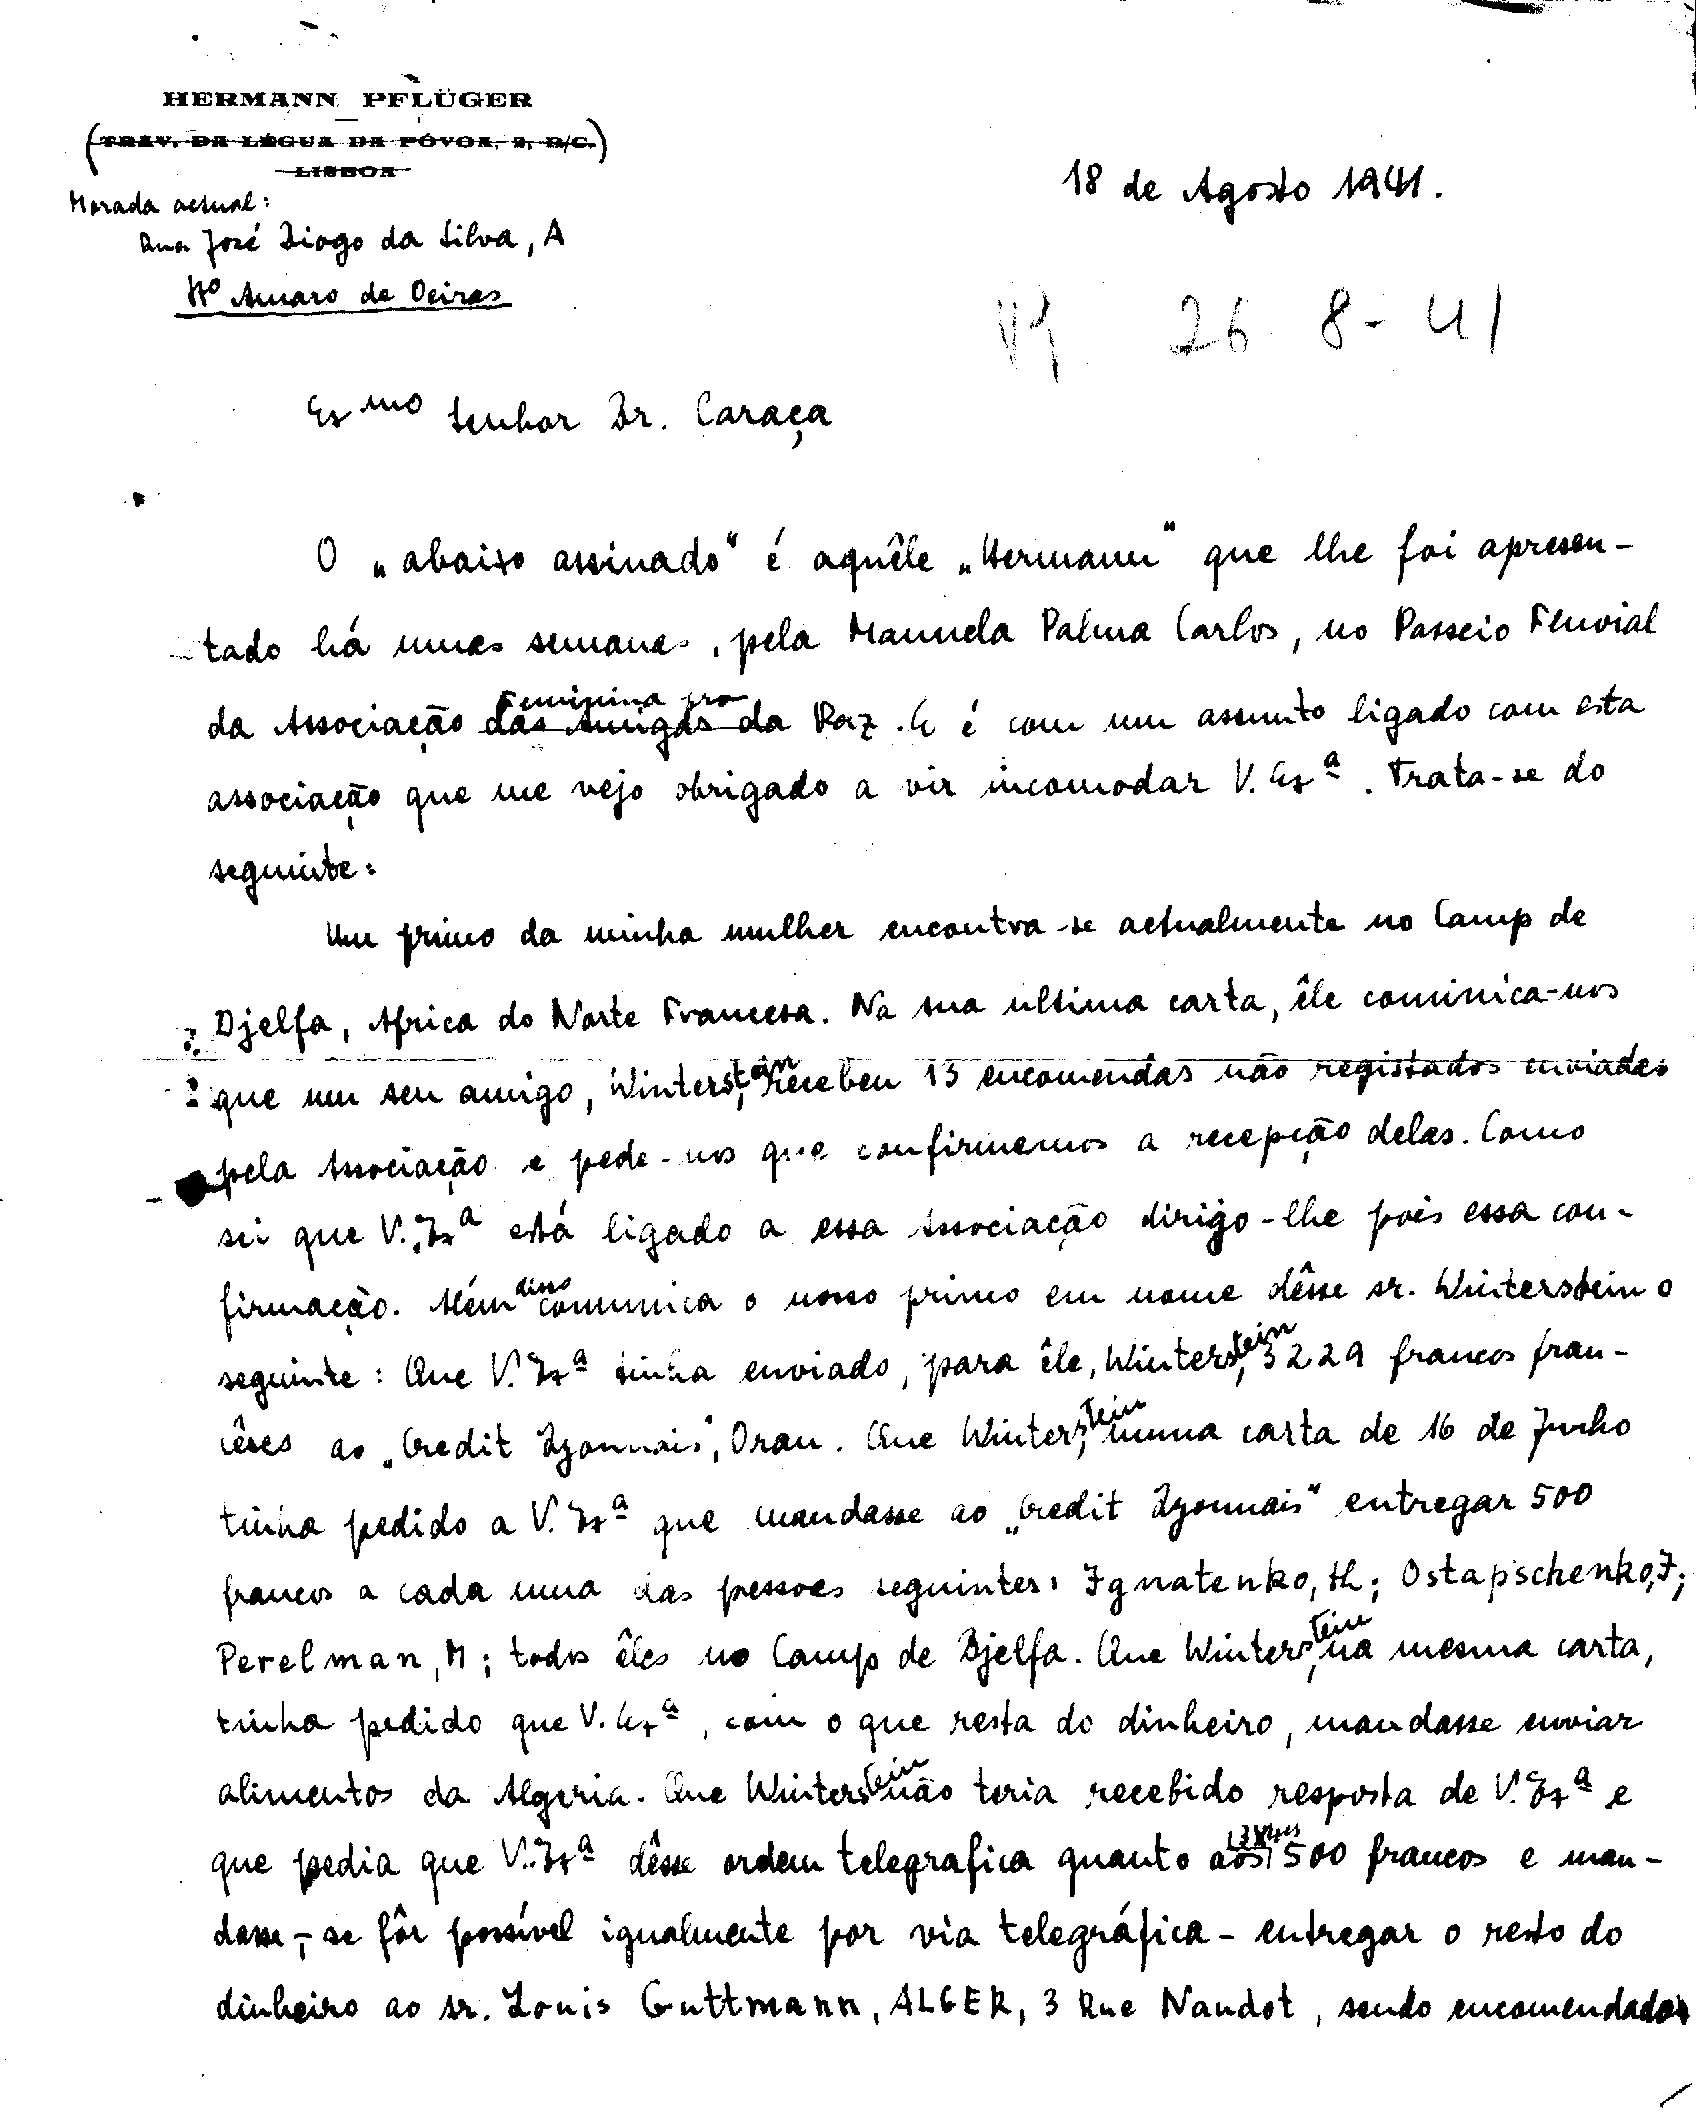 HERMANN PFLÜGER
(TRAV. DA LÉGUA DA PÓVOA, 2, R/C.)
LISBOA
Morada actual:
Rua José Diogo da Silva, A
Stº Amaro de Oeiras
18 de Agosto 1941.
26 8-41
Exmo Senhor Dr. Caraça
O „abaixo assinado" é aquêle „Hermann" que lhe foi apresen-
tado há umas semanas, pela Manuela Palma Carlos, no Passeio Fluvial
da Associação das Amigas Feminina pro da Paz. E é com um assunto ligado com esta
associação que me vejo obrigado a vir incomodar V. Exª. Trata-se do
seguinte:
Um primo da minha mulher encontra-se actualmente no Camp de
Djelfa, Africa do Norte Francesa. Na sua ultima carta, êle cominica-nos
que um seu amigo, Winterstein, recebeu 13 encomendas não registados enviades
pela Associação e pede-nos que confirmemos a recepção delas. Como
sei que V. Exª está ligado a essa Associação dirigo-lhe pois essa con-
firmação. Além disso comunica o nosso primo em nome dêsse sr. Winterstein o
seguinte: Que V. Exª tinha enviado, para êle, Winterstein, 3229 francos fran-
cêses ao „Credit Lyonnais", Oran. Que Winterstein, numa carta de 16 de Junho
tinha pedido a V. Exª que mandasse ao „Credit Lyonnais" entregar 500
francos a cada uma das pessoas seguintes: Ignatenko, Th; Ostapschenko, J;
Perelman, M; todos êles no Camp de Djelfa. Que Winterstein, na mesma carta,
tinha pedido que V. Exª, com o que resta do dinheiro, mandasse enviar
alimentos da Algeria. Que Winterstein não teria recebido resposta de V. Exª e
que pedia que V. Exª dêsse ordem telegrafica quanto aos 500 francos e man-
dasse, - se fôr possível igualmente por via telegráfica - entregar o resto do
dinheiro ao sr. Louis Guttmann, ALGER, 3 Rue Naudot, sendo encomendados